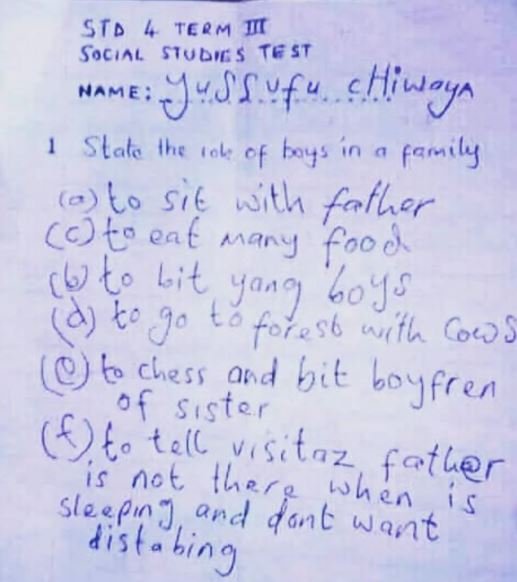 STD 4 TERM III
SOCIAL STUDIES TEST
NAME: Yussufu cHiwaya
1 State the role of boys in a family
(a) to sit with father
(c) to eat many food
(b) to bit yang boys
(d) to go to forest with cows
(e) to chess and bit boyfren
of sister
(f) to tell visitaz father
is not there when is
sleeping and dont want
distabing